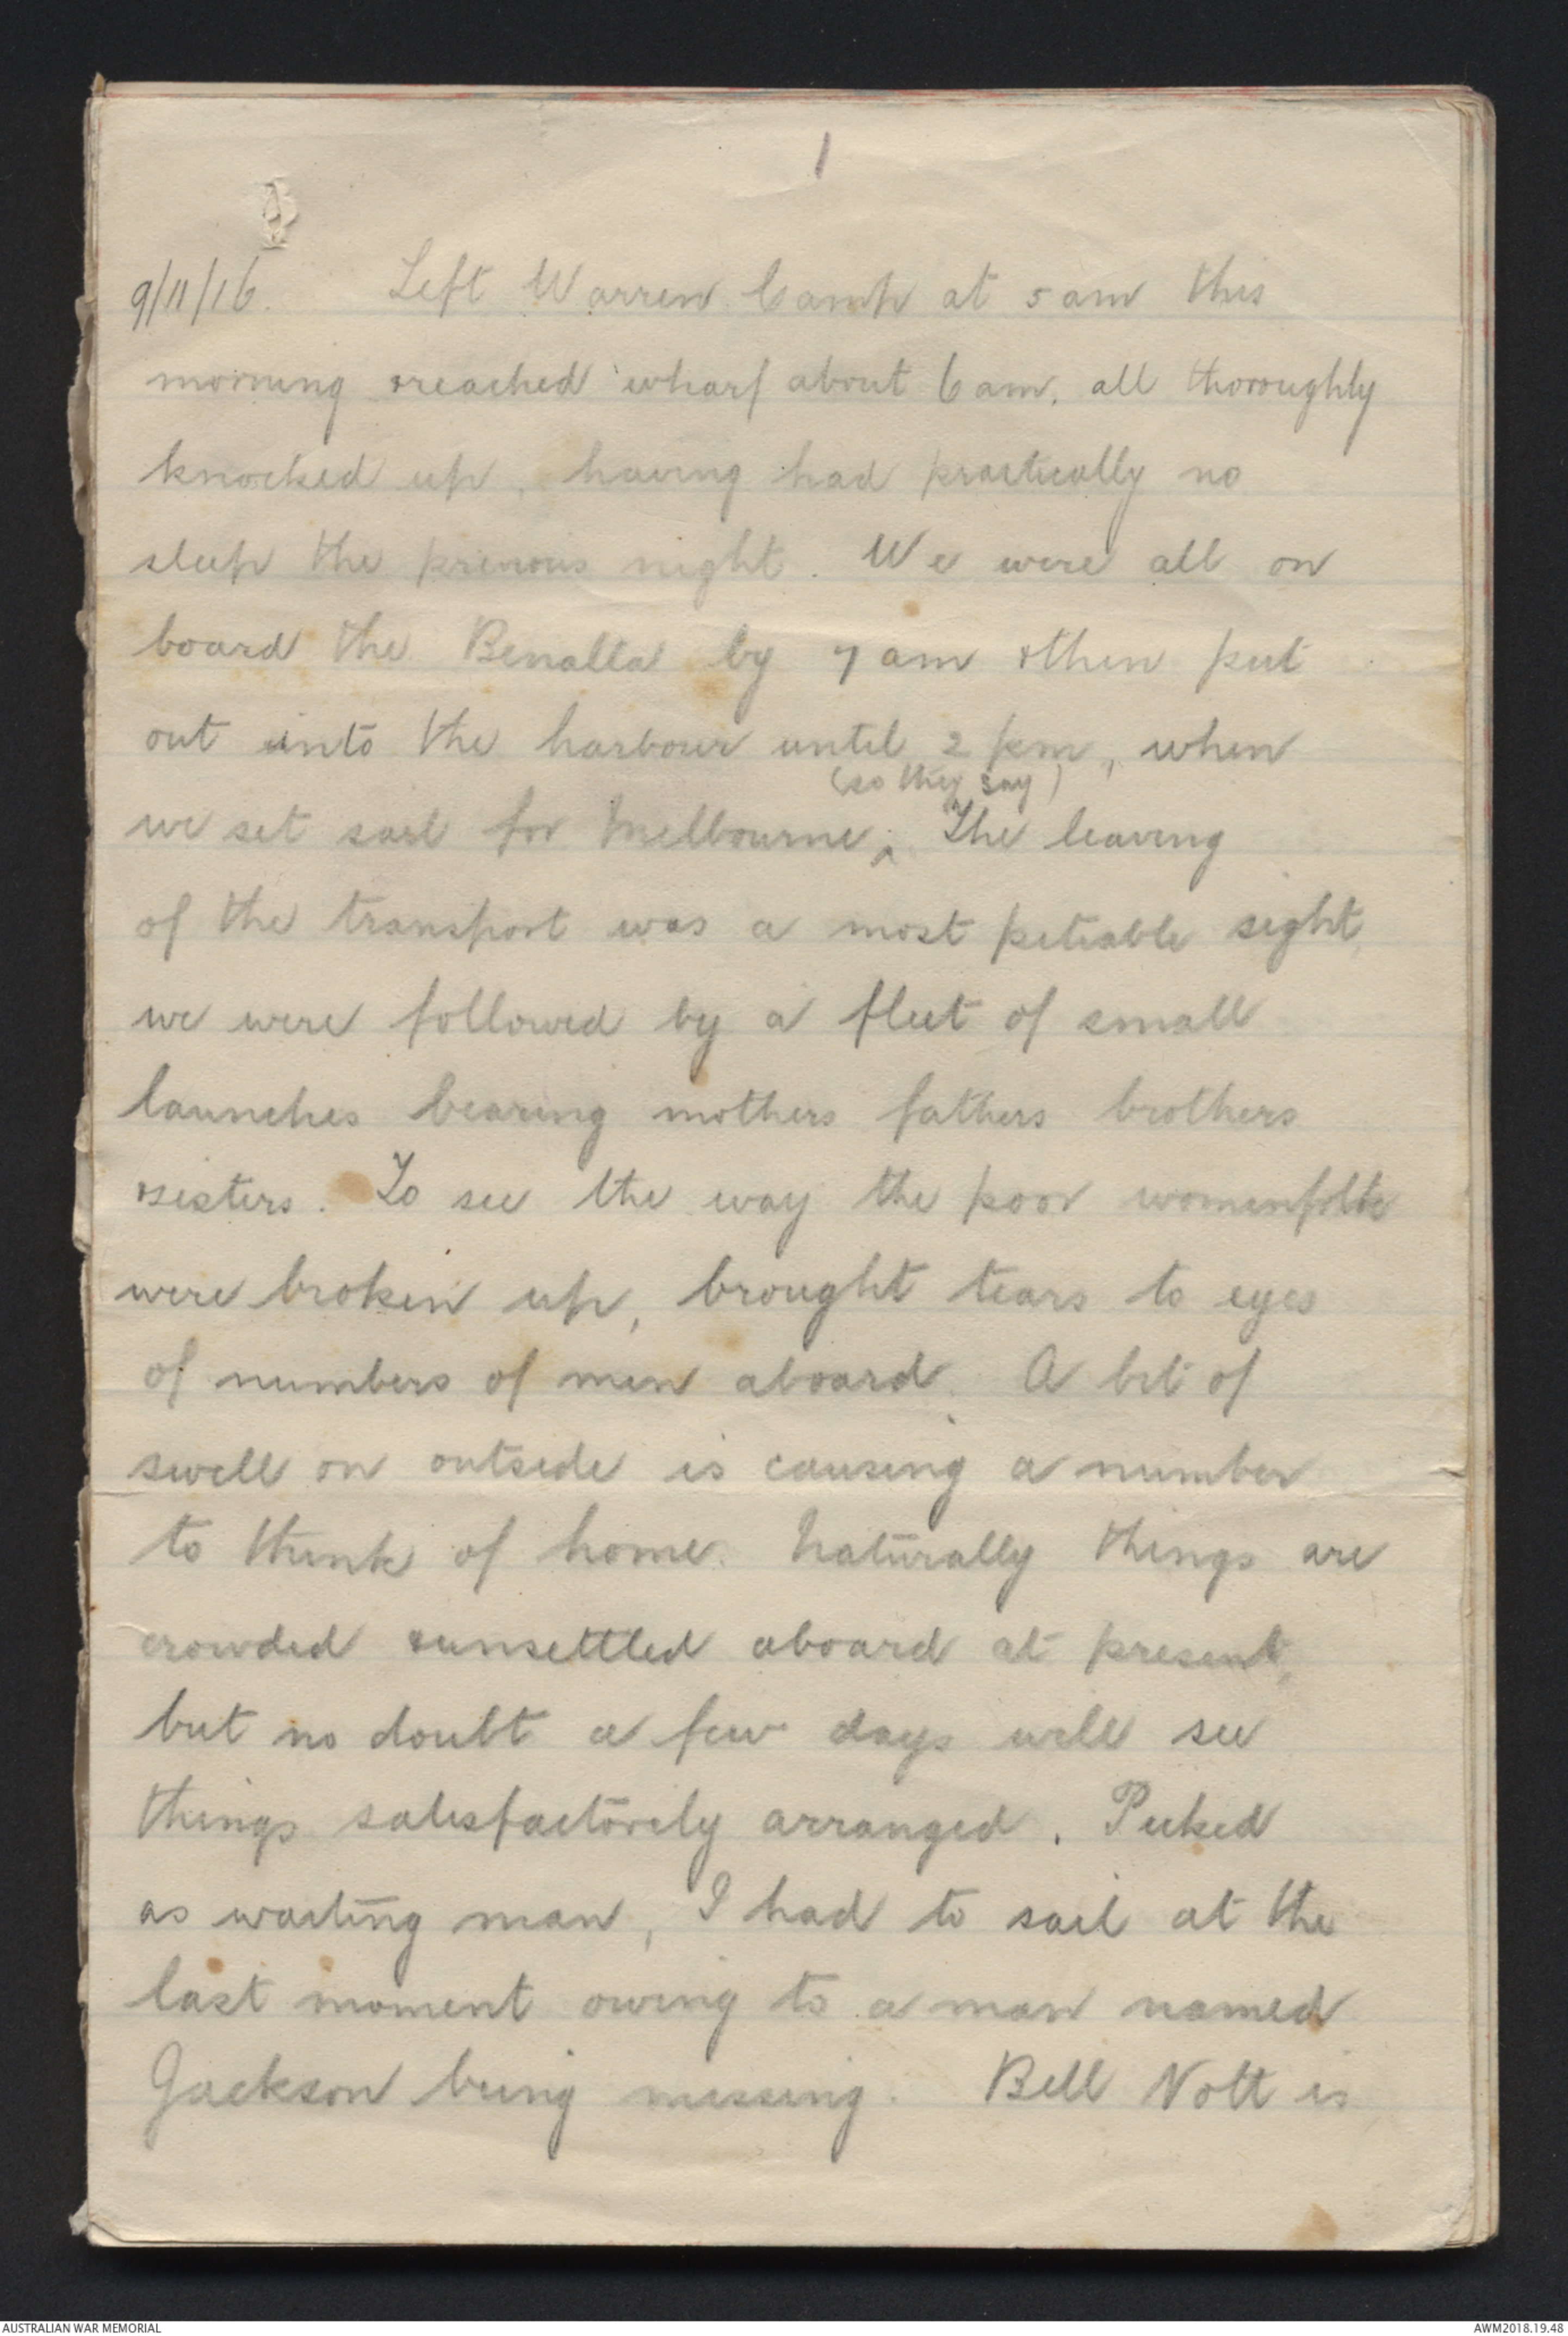 1
9/11/16. Left Warren Camp at 5 am this
morning & reached wharf about 6 am, all thoroughly
knocked up, having had practically no
sleep the previous night. We were all on
board the Benalla by 7 am & then put
out into the harbour until 2 pm, when
(so they say)
we set sail for Melbourne ^. The leaving
of the transport was a most pitiable sight,
we were followed by a fleet of small
launches bearing mothers fathers brothers
& sisters. To see the way the poor womenfolk
were broken up, brought tears to eyes
of numbers of men aboard. A bit of
swell on outside is causing a number
to think of home. Naturally things are
crowded & unsettled aboard at present,
but no doubt a few days will see
things satisfactorily arranged. Picked
as waiting man, I had to sail at the
last moment owing to a man named
Jackson being missing. Bill Nott is
AUSTRALIAN WAR MEMORIAL
AWM2018.19.48